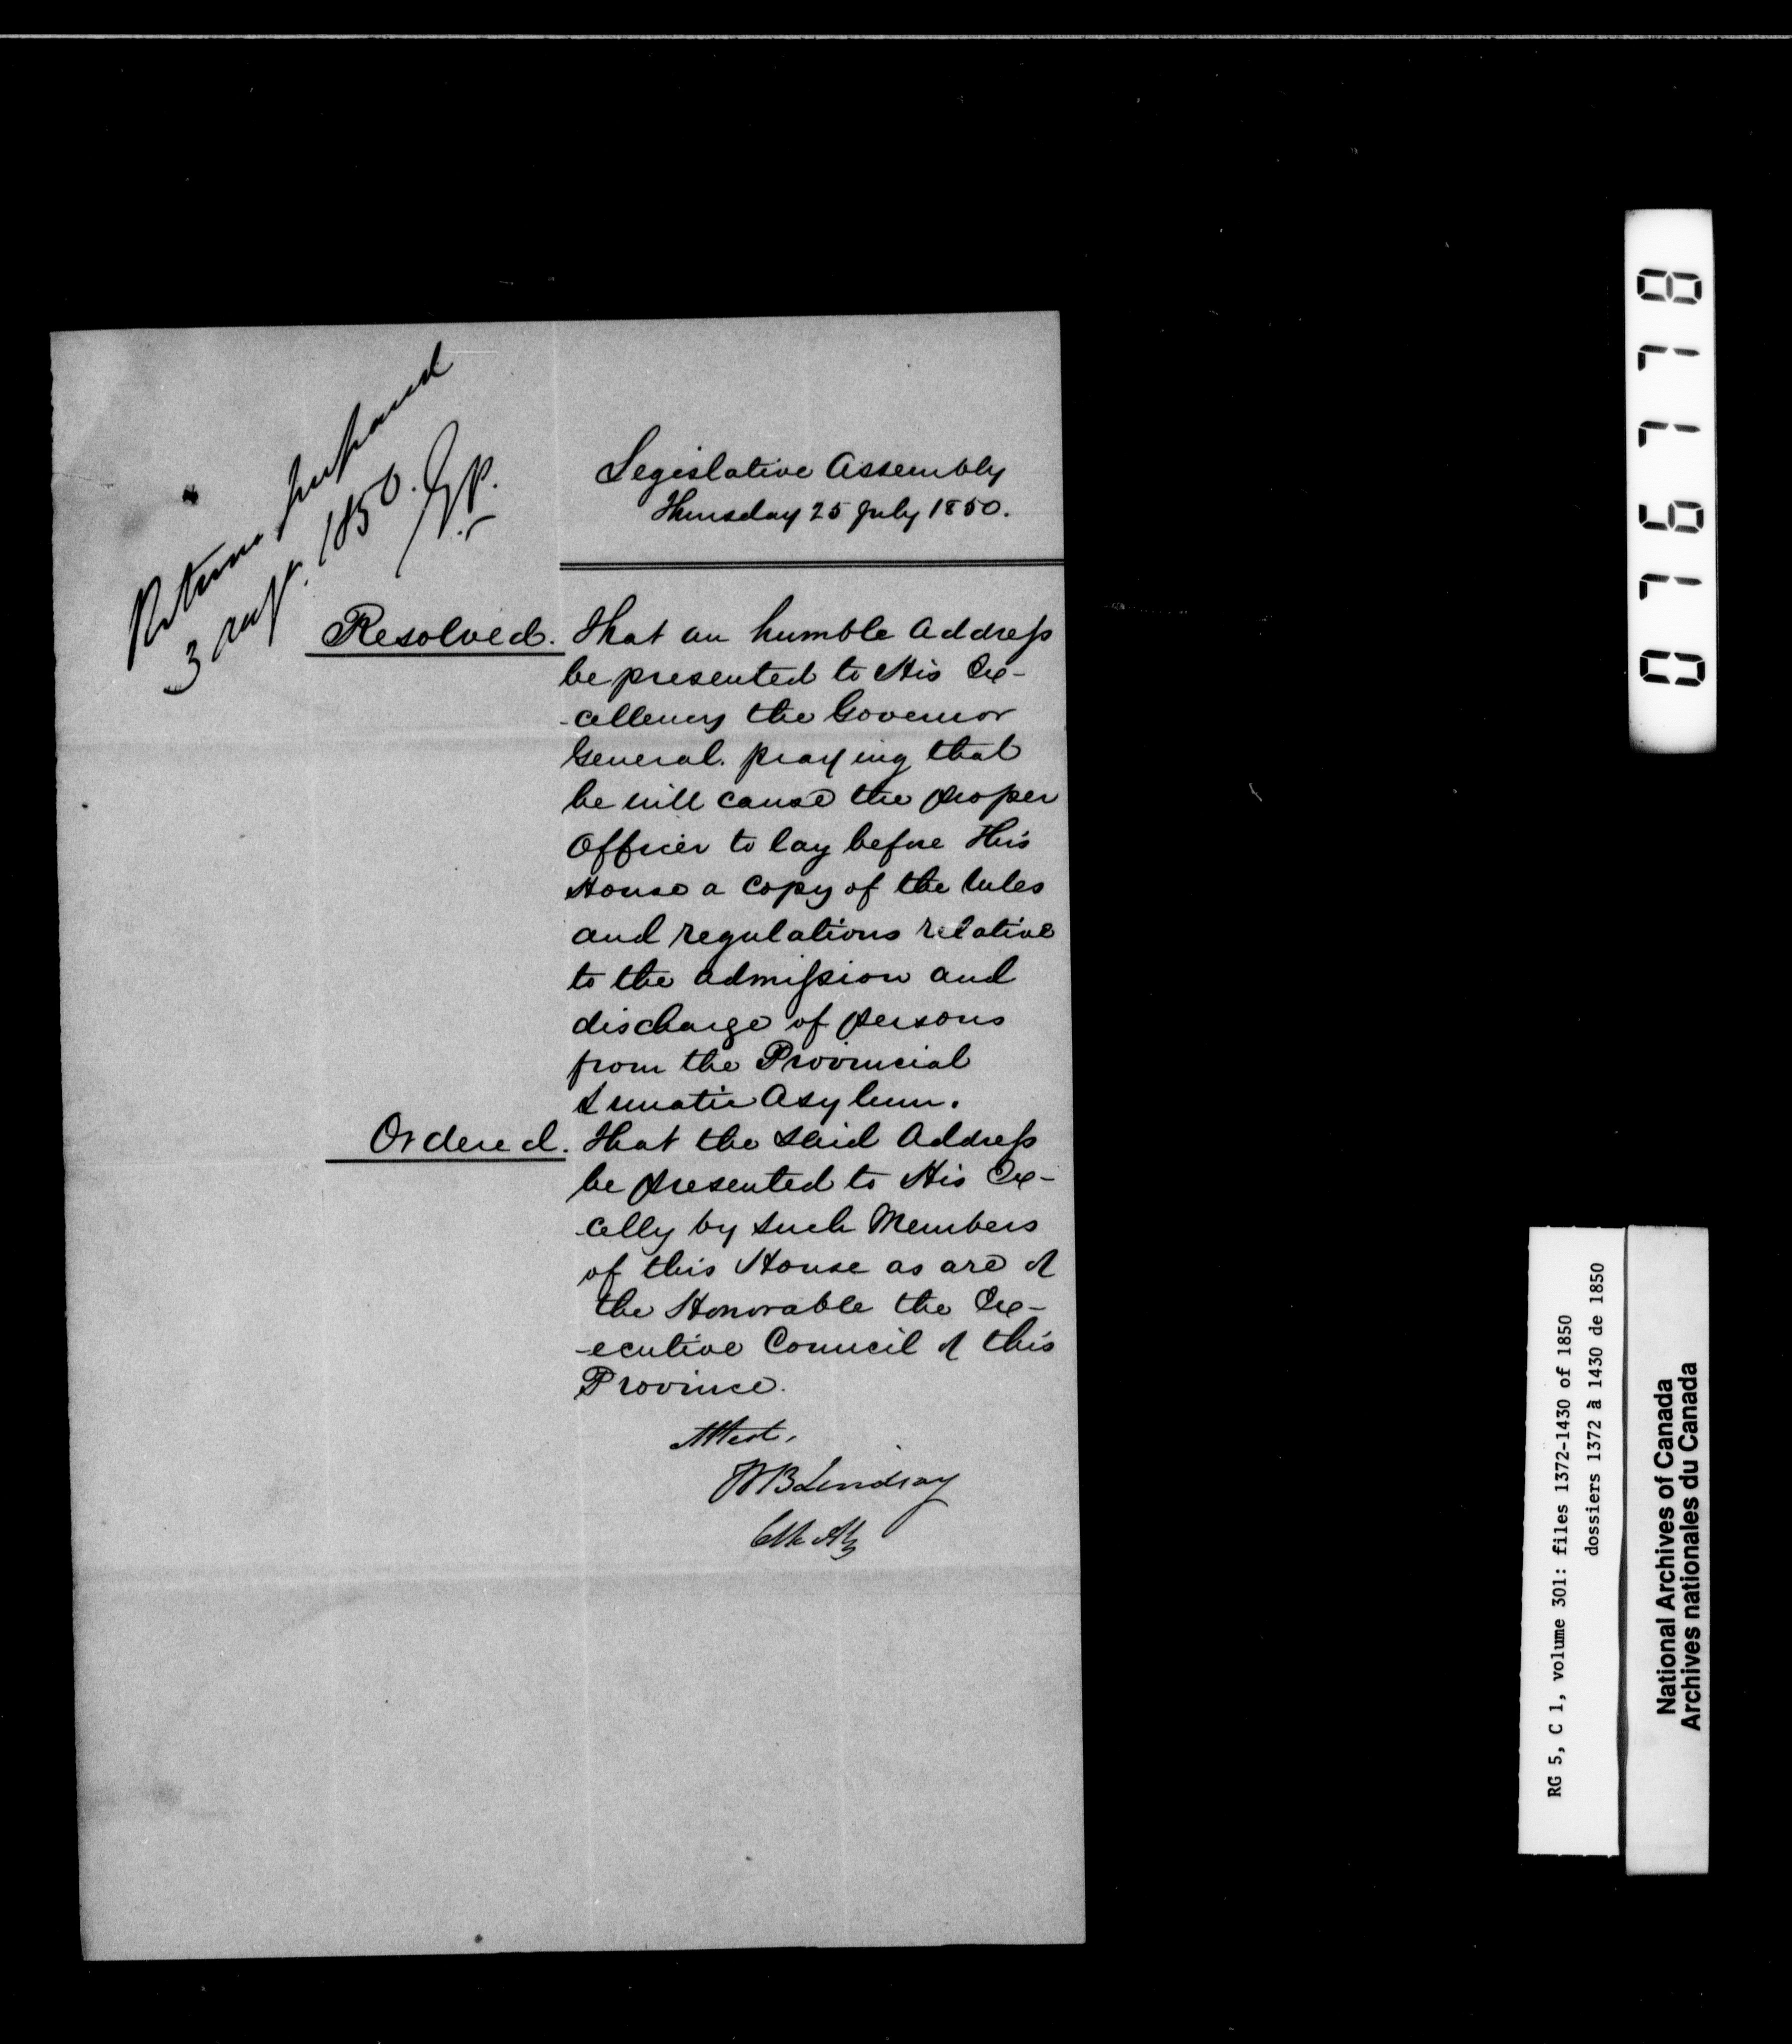 Return prepared
3 augt. 1850.
Legislative Assembly
Thursday 25 July 1850.
Resolved. That an humble Address
be presented to His Ex-
-cellency the Governor
General. praying that
he will cause the proper
Officer to lay before this
House a copy of the rules
and regulations relative
to the admission and
discharge of persons
from the Provincial
Lunatic Asylum.
Ordered. That the said Address
be presented to His Ex-
-celly by such Members
of this House as are of
the Honorable the Ex-
-ecutive Council of this
Province.
Attest,
WB Lindsay
Clk Assy
076778
RG 5, C 1, volume 301: files 1372-1430 of 1850
dossiers 1372 à 1430 de 1850
National Archives of Canada
Archives nationales du Canada